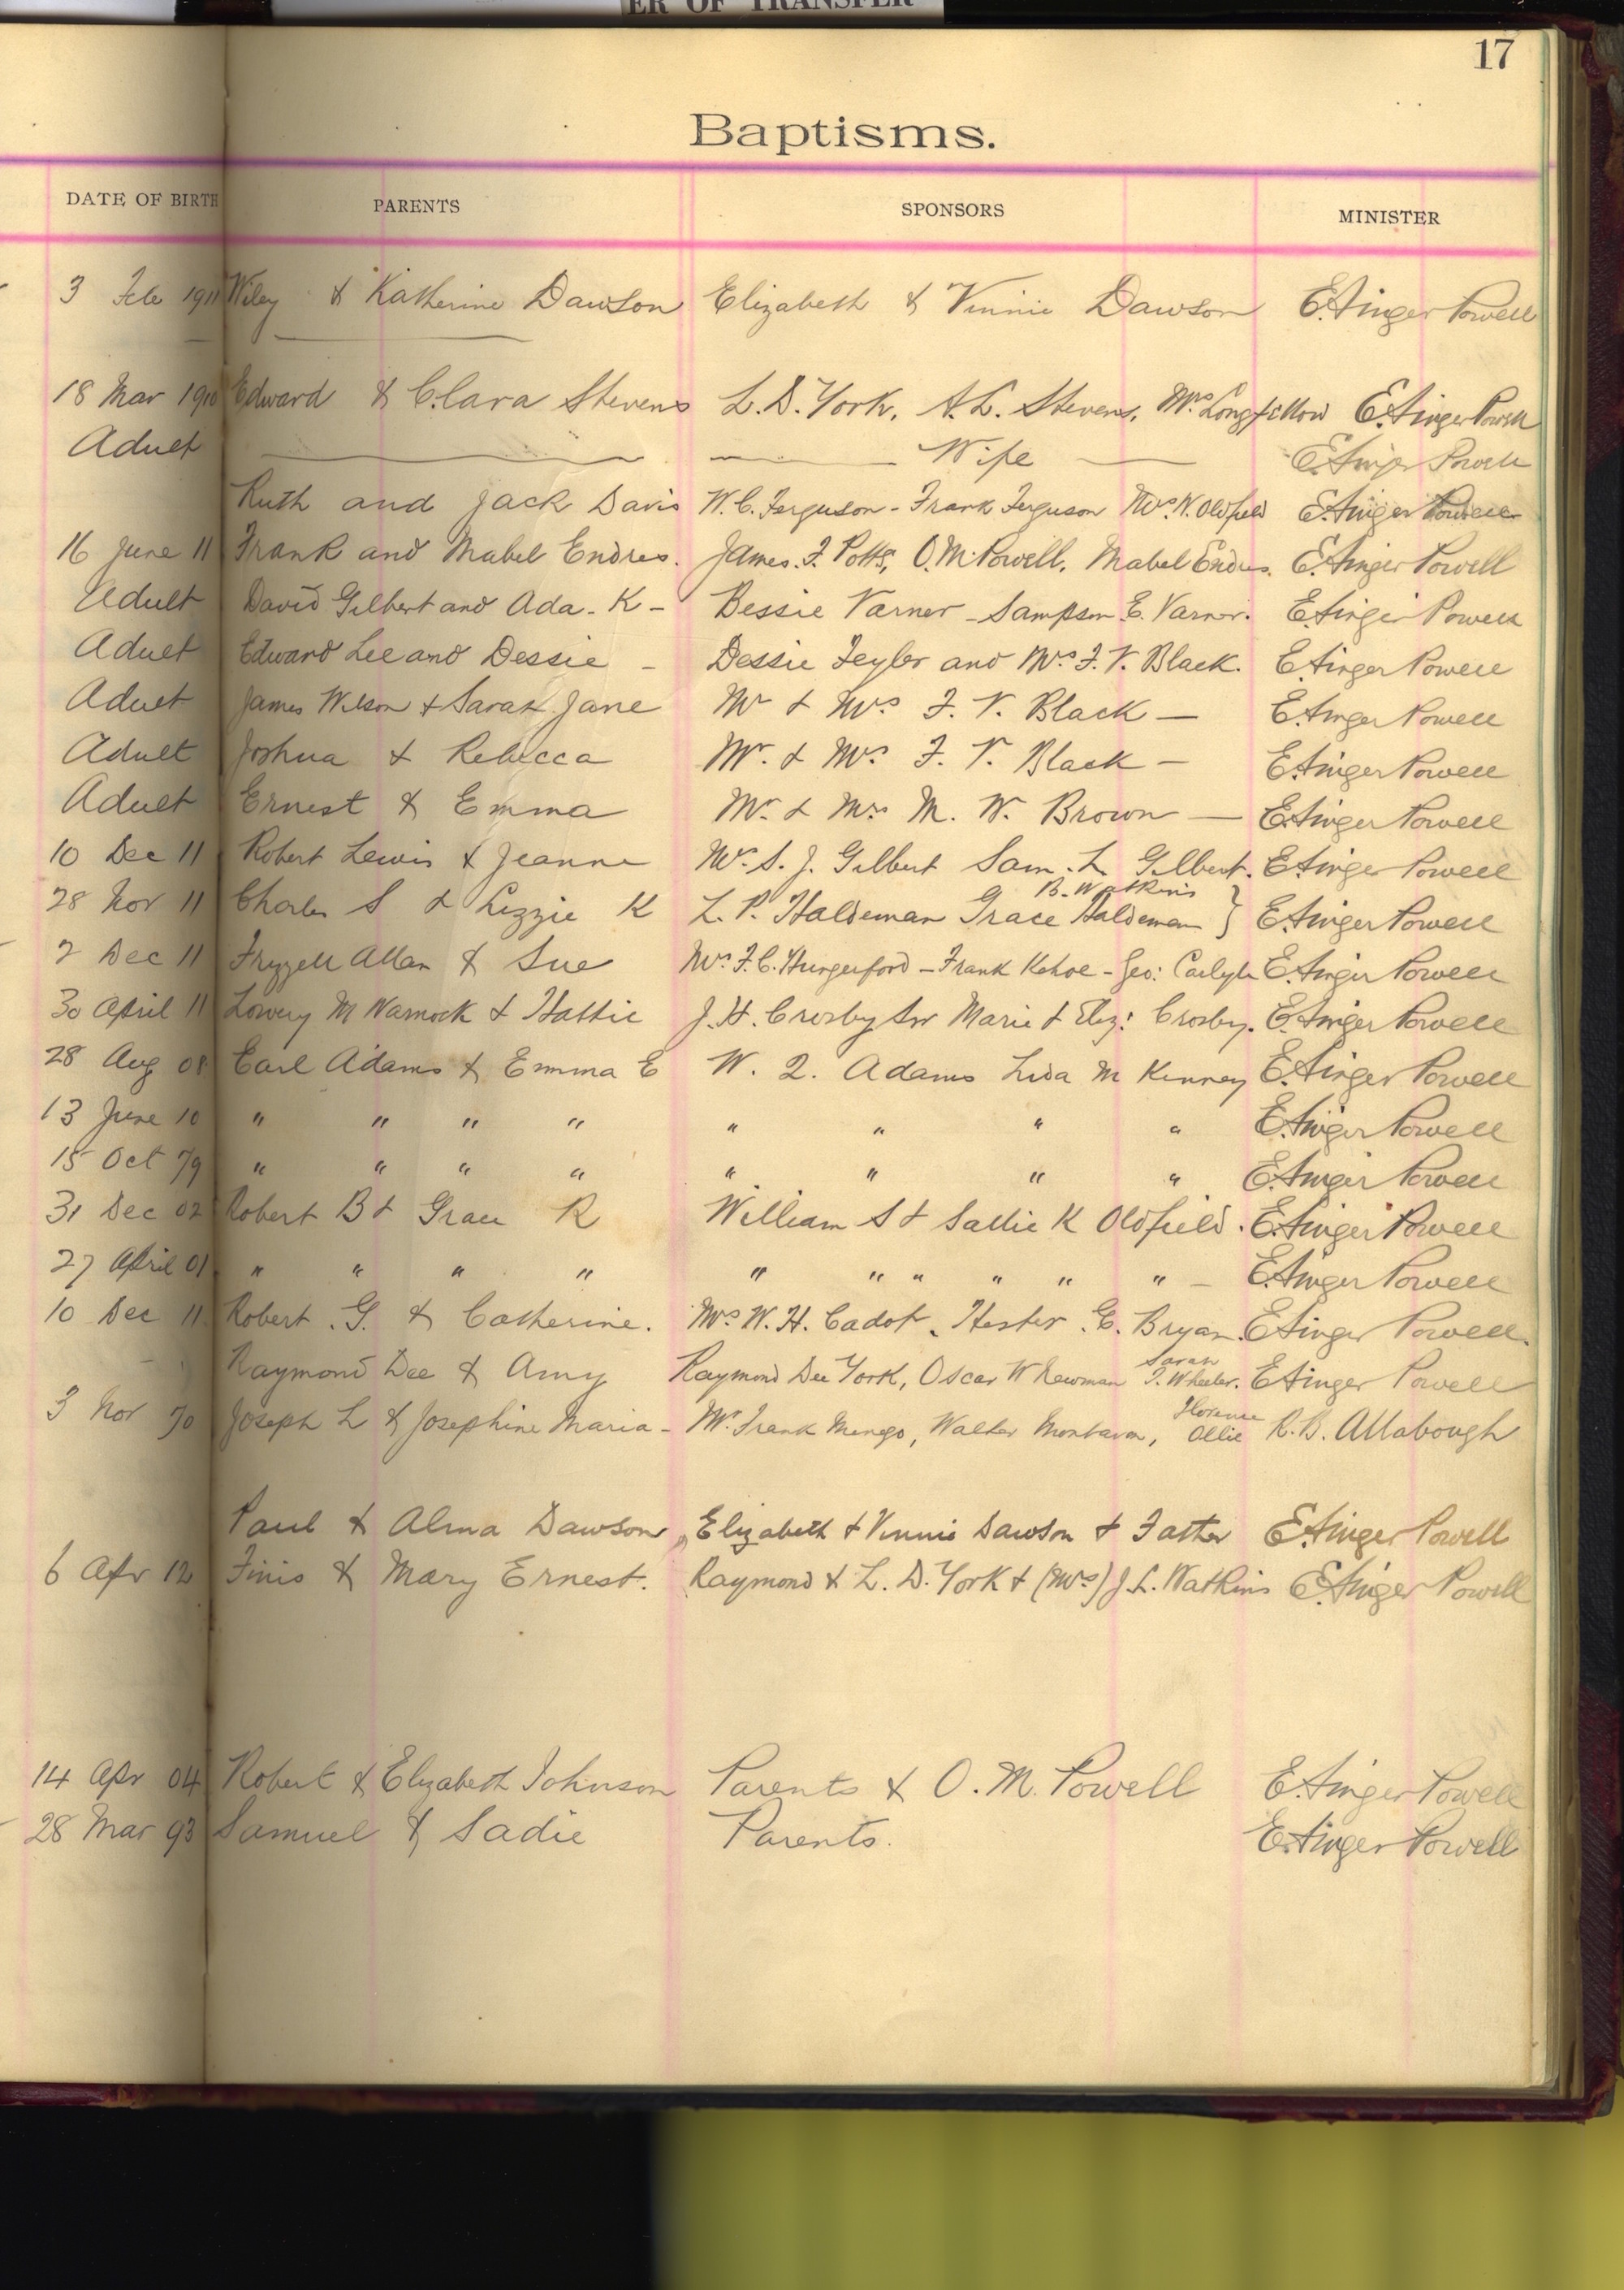 ER OF TRANSFER
17
Baptisms.
DATE OF BIRTH PARENTS SPONSORS MINISTER
3 Feb 1911 Wiley & Katherine Dawson Elizabeth & Vinnie Dawson E. Ainger Powell
18 Mar 1910 Edward & Clara Stevens L. D. York, A. L. Stevens, Mrs Longfellow E. Ainger Powell
Adult Wife E. Ainger Powell
Ruth and Jack Davis W. C. Ferguson - Frank Ferguson Mrs. W. Oldfield E. Ainger Powell
16 June 11 Frank and Mabel Endres. James. F. Potts, O. M. Powell, Mabel Endres. E. Ainger Powell
Adult David Gilbert and Ada - K - Bessie Varner - Sampson E. Varner. E. Ainger Powell
Adult Edward Lee and Dessie - Dessie Feyler and Mrs F. V. Black. E. Ainger Powell
Adult James Wilson & Sarah Jane Mr & Mrs F. V. Black — E. Ainger Powell
Adult Joshua & Rebecca Mr. & Mrs F. V. Black — E. Ainger Powell
Adult Ernest & Emma Mr. & Mrs M. W. Brown — E. Ainger Powell
10 Dec 11 Robert Lewis & Jeanne Mrs. S. J. Gilbert Sam. L. Gilbert. E. Ainger Powell
B. Watkins
28 Nov 11 Charles S & Lizzie K L. P. Haldeman Grace Haldeman } E. Ainger Powell
2 Dec 11 Frizzell Allan & Sue Mrs. F. C. Hungerford - Frank Kehoe - Geo: Carlyle E. Ainger Powell
30 April 11 Lowery M Warnock & Hattie J. H. Crosby Snr Marie & Eliz: Crosby. E. Ainger Powell
28 Aug 08 Earl Adams & Emma E W. Q. Adams Lida M Kinney E. Ainger Powell
13 June 10 " " " " " " " " E. Ainger Powell
15 Oct 79 " " " " " " " " E. Ainger Powell
31 Dec 02 Robert B & Grace R William S & Sallie K Oldfield. E. Ainger Powell
27 April 01 " " " " " " " " " " - E. Ainger Powell
10 Dec 11 Robert. G. & Catherine. Mrs. W. H. Cadot. Hester. G. Bryan. E. Ainger Powell.
Sarah
Raymond Dee & Amy Raymond Dee York, Oscar W Newman T. Wheeler. E. Ainger Powell
Florence
3 Nov 70 Joseph L & Josephine Maria - Mr. Frank Mengo, Walter Montavon, Ollie R. B. Allabough
Paul & Alma Dawson, Elizabeth & Vinnie Dawson & Father E. Ainger Powell
6 Apr 12 Finis & Mary Ernest. Raymond & L. D. York & (Mrs) J. L. Watkins E. Ainger Powell
14 Apr 04 Robert & Elizabeth Johnson Parents & O. M. Powell E. Ainger Powell
28 Mar 93 Samuel & Sadie Parents. E. Ainger Powell